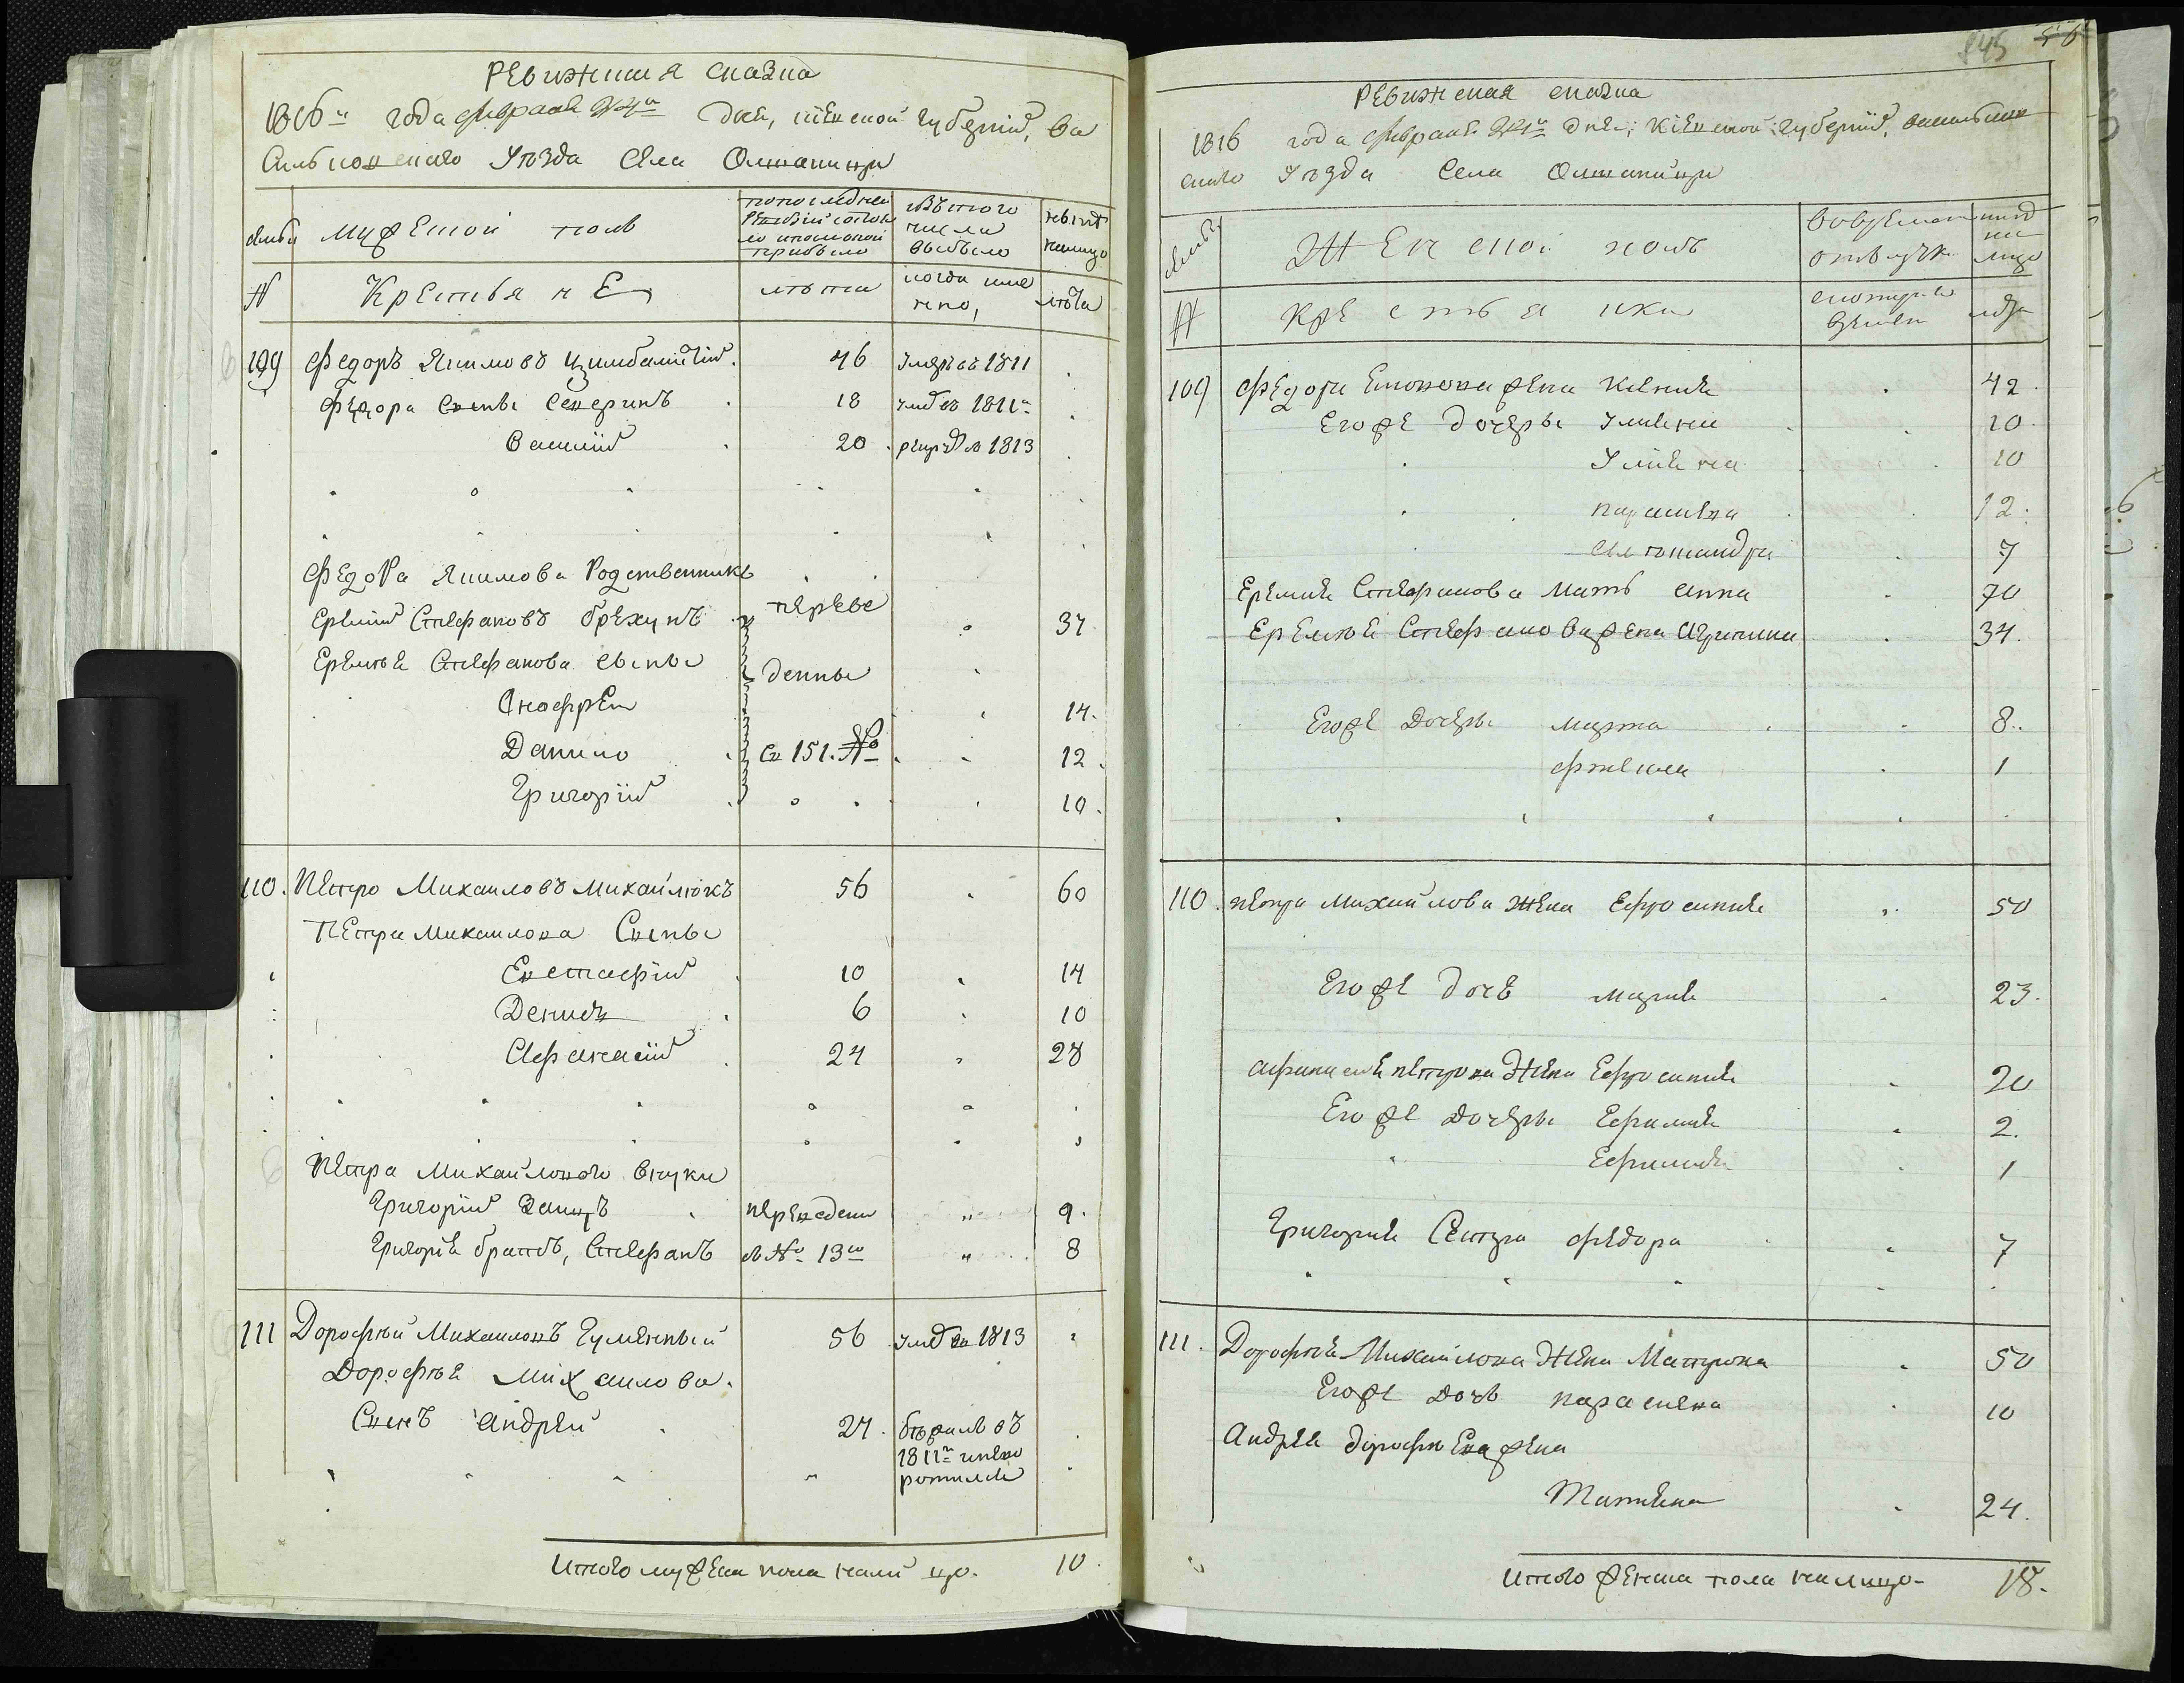 Ревижская сказка
1816го года февраля дня, Киевской губернии, Ва
сильковского Уезда Села Ольшаници
семьи мужеской полъ
по последней ревизии состояло и после оной прибыло
изъ того числа выбыло
ныне на лицо
№ Крестьяне лета когда именно, лета
109 Федоръ Якимовъ Цимбалистий. 46 умре въ 1811
Федора Сыны Северинъ 18 умре въ 1811го
Василий 20 рекрут в 1813
Федора Якимова Родственникъ
Еремий Стефановъ Брехунъ переве 37
Еремея Стефанова сыны дены
Оноффрей 14.
Данило Съ 151. № 12
Григорий 10.
110. Петро Михаиловъ Михайлюкъ 56 60
Петра Михаилова Сыны
Евстафий 10 14
Денисъ 6 10
Афанасий 24 28
Петра Михайлового внуки
Григорий Заицъ переведены 9.
Григория братъ, Стефанъ с № 13го 8
111 Дорофей Михаиловъ Гуменный 56 умре въ 1813
Дорофея Михаилова.
Сынъ Андрей 24. бежалъ въ
1811го и не во
ротился
Итого мужеска пола налицо. 10.
845 56
Ревижская сказка
1816 года февраля дня, Киевской губернии, Васильков
ского Уезда Села Ольшаници
семьи Женской полъ во временной отлучке ныне на лицо
№ Крестьянки с которого времени лета
109 Федора жена Ксения 42.
Его же дочеры Улияна 10.
Улияна 10
Парасквва 12.
7
Еремея Стефанова мать Анна 70
Еремея Стефанова жена Агрипина 34.
Его же Дочеры Марта 8.
Фекла 1
110. Петра Михайлова Жена Ефросиния 50
Его же дочь Мария 23.
Афанасия Петрова Жена Ефросиния 20
Его же дочеры Ефимия 2.
Ефимия 1
Григория Сестра Федора 7
111. Дорофея Михайлова Жена Матрона 50
Его же дочь Парасквва 10
Андрея Дорофеева жена
Татиена 24.
Итого женска пола налицо. 18.